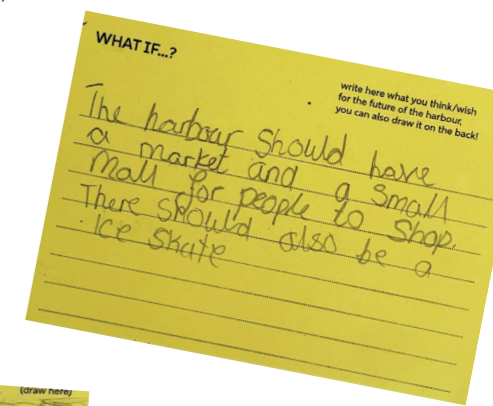 WHAT IF...?
write here what you think/wish
for the future of the harbour,
you can also draw it on the back!
The harbour should have
a market and a small
mall for people to shop.
There should also be a
ice skate
(draw here)